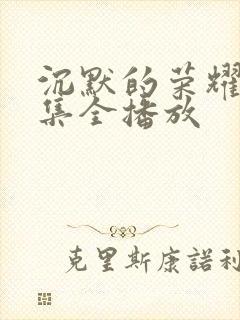 沉默的荣耀
集全播放
克里斯康諾利